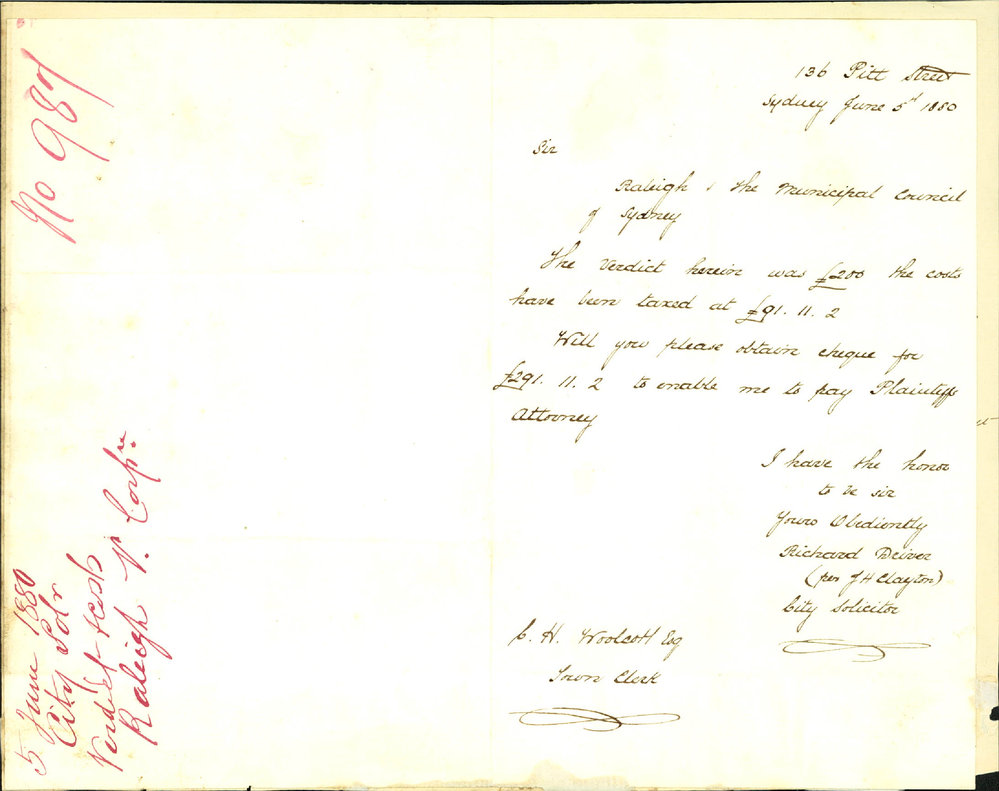 136 Pitt Street
Sydney June 5th 1880
Sir
Raleigh v the Municipal Council
of Sydney
The Verdict herein was £200 the costs
have been taxed at £91. 11. 2
Will you please obtain cheque for
£291. 11. 2 to enable me to pay Plaintiffs
Attorney
I have the honor
to be sir
Yours Obediently
Richard Driver
(per J H Clayton)
City Solicitor
C. H. Woolcott Esq
Town Clerk
No 987
5 June 1880
City Solr
Verdict & costs
Raleigh v. Corpn.